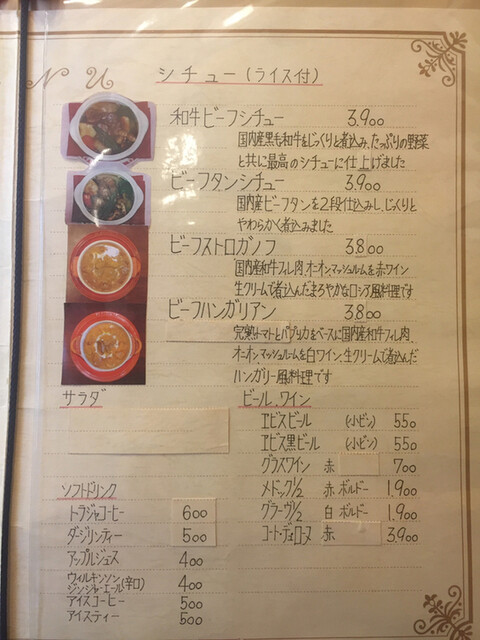 NU
シチュー(ライス付)
和牛ビーフシチュー 3.900
国内産黒毛和牛をじっくりと煮込み、たっぷりの野菜
と共に最高のシチューに仕上げました
ビーフタンシチュー 3.900
国内産ビーフタンを2段仕込みし、じっくりと
やわらかく煮込みました
ビーフストロガノフ 3.800
国内産和牛フィレ肉、オニオンマッシュルームを赤ワイン
生クリームで煮込んだまろやかなロシア風料理です
ビーフハンガリアン 3.800
完熟トマトとパプリカをベースに国内産和牛フィレ肉、
オニオン、マッシュルームを白ワイン、生クリームで煮込んだ
ハンガリー風料理です
サラダ
ビール、ワイン
エビスビール (小ビン) 550
エビス黒ビール (小ビン) 550
グラスワイン 赤 700
メドック1/2 赤 ボルドー 1.900
グラーヴ1/2 白 ボルドー 1.900
コート・デュ・ローヌ 赤 3.900
ソフトドリンク
トラジャコーヒー 600
ダージリンティー 500
アップルジュス 400
ウィルキンソン
ジンジャエール(辛口) 400
アイスコーヒー 500
アイスティー 500